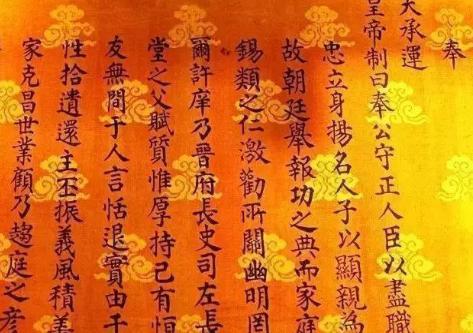 奉
天承運
皇帝制曰奉公守正人臣以盡職
忠立身揚名人子以顯親為
故朝廷舉報功之典而家庭
錫類之仁激勸所關幽明罔
爾許庠乃晉府長史司左長
堂之父賦質惟厚持己有恒
友無間于人言恬退實由于
性拾遺還主丕振義風積善
家克昌世業顧乃趨庭之彥